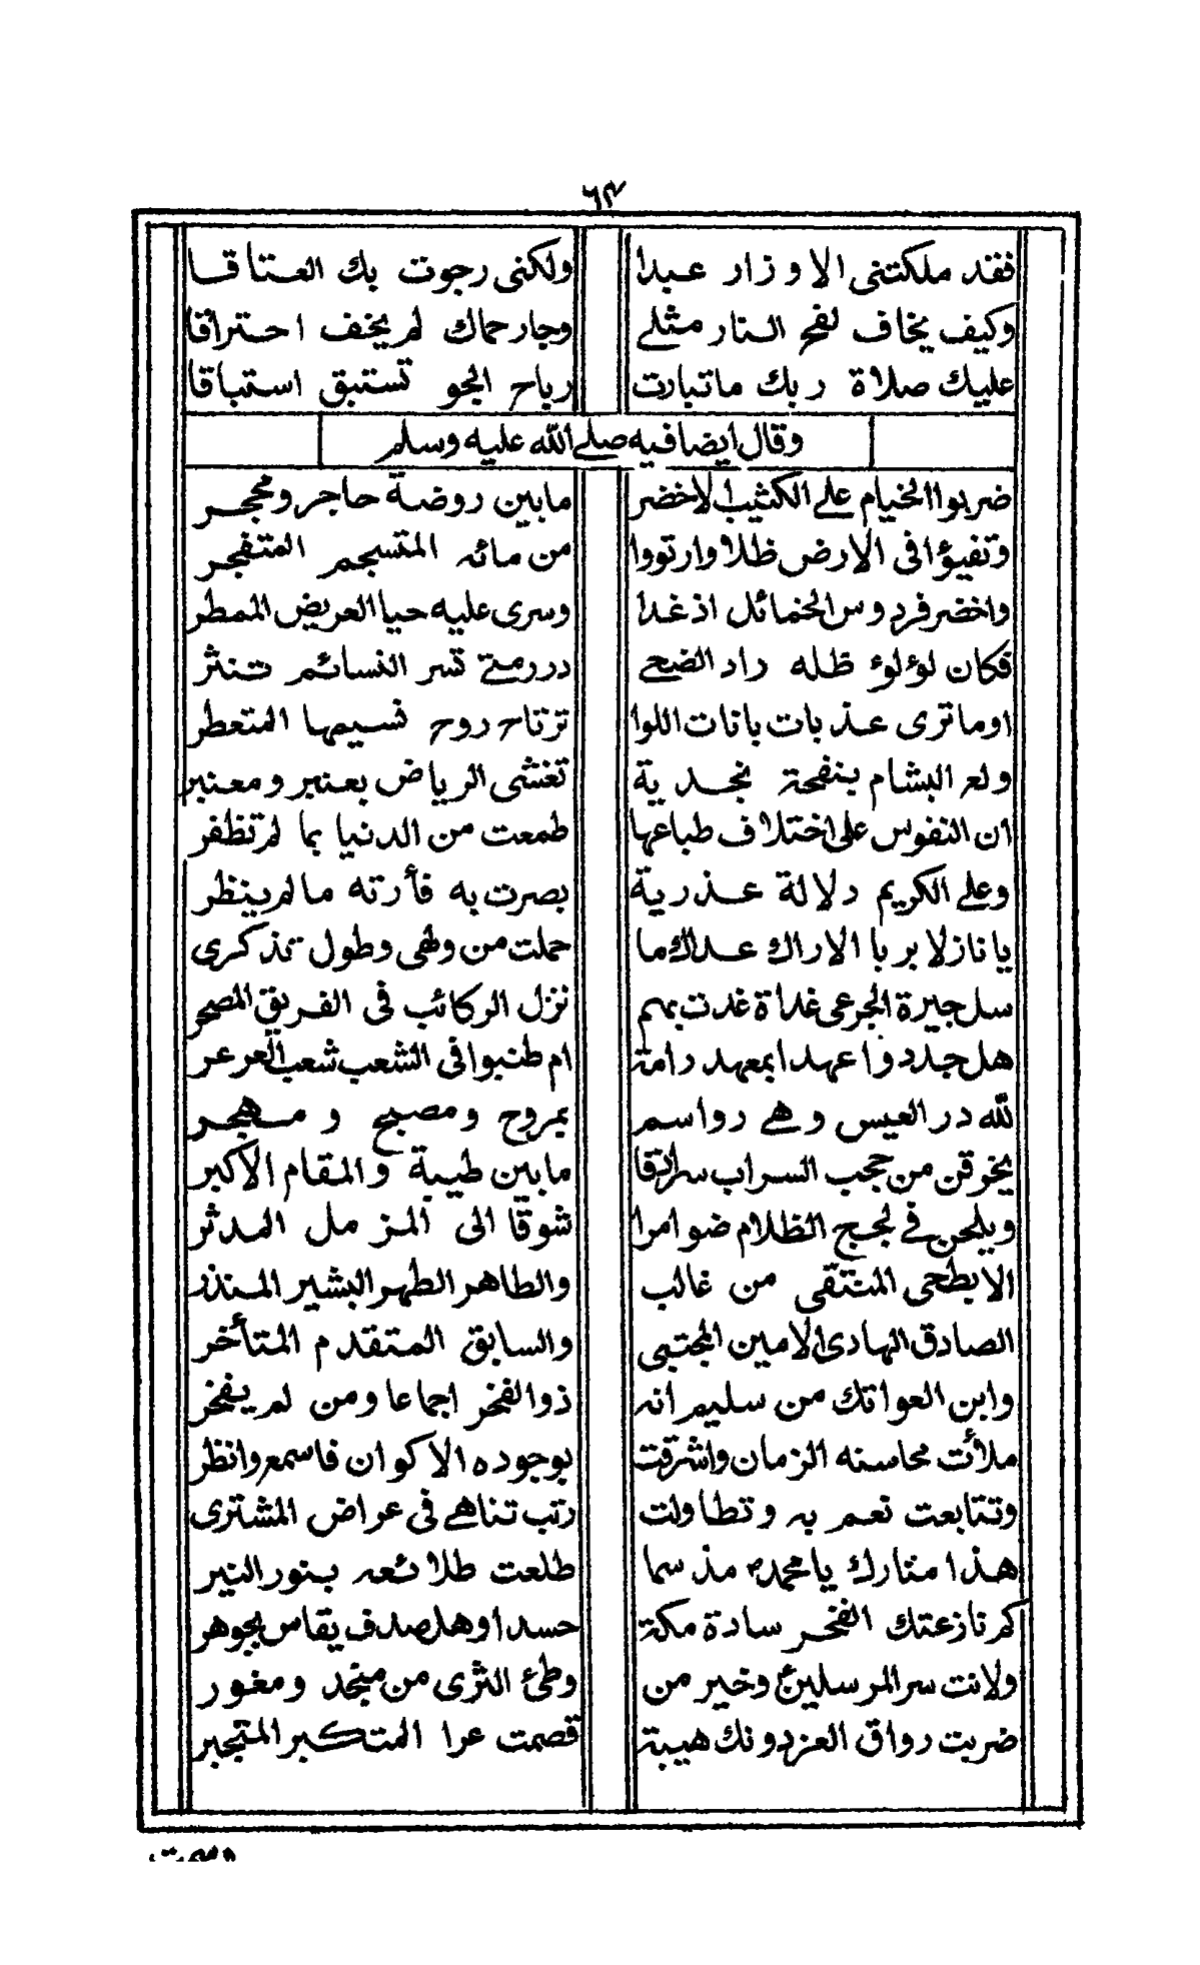 ٦٣
فقد ملكتنى الاوزار عبدا ولكنى رجوت بك العتاقا
وكيف يخاف لفح النار مثلے وجار حماك لم يخف احتراقا
عليك صلاة ربك ماتبارت رياح الجو تستبق استباقا
وقال ايضا فيه صلے الله عليه وسلم
ضربوا الخيام علے الكثيب الاخضر مابين روضة حاجر ومحجر
وتفيؤا فى الارض ظلا وارتووا من مائه المتسجم المتفجر
واخضر فردوس الخمائل اذغدا وسرى عليه حيا العريض الممطر
فكان لؤلوء ظله راد الضحے درر متے تسر النسائم تنثر
اوماترى عذبات بانات اللوا ترتاح روح نسيمها المتعطر
ولع البشام بنفحة نجدية تغشى الرياض بعنبر ومعنبر
ان النفوس على اختلاف طباعها طمعت من الدنيا بما لم تظفر
وعلے الكريم دلالة عذرية بصرت به فأرته مالم ينظر
يانازلا بربا الاراك عداك ما حملت من ولهى وطول تذكرى
سل جيرة الجرعى غداة غدت بهم نزل الركائب فى الفريق المصحر
هل جددوا عهدا بمعهد رامة ام طنبوا فى الشعب شعب العرعر
لله در العيس وهے رواسم بمروح ومصبح ومهجر
يخرقن من حجب السراب سرادقا مابين طيبة والمقام الاكبر
ويلجن فے لجج الظلام ضوامرا شوقا الى المزمل المدثر
الابطحى المنتقى من غالب والطاهر الطهر البشير المنذر
الصادق الهادى الامين المجتبى والسابق المتقدم المتأخر
وابن العواتك من سليم انه ذوالفخر اجماعا ومن لم يفخر
ملأت محاسنه الزمان واشرقت بوجوده الاكوان فاسمع وانظر
وتتابعت نعم به وتطاولت رتب تناهے فى عراض المشترى
هذا منارك يامحمد مذ سما طلعت طلائعه بنور النير
كم نازعتك الفخر سادة مكة حسدا وهل صدف يقاس بجوهر
ولانت سر المرسلين وخير من وطئ الثرى من منجد ومغور
ضربت رواق العز دونك هيبة قصمت عرا المتكبر المتجبر